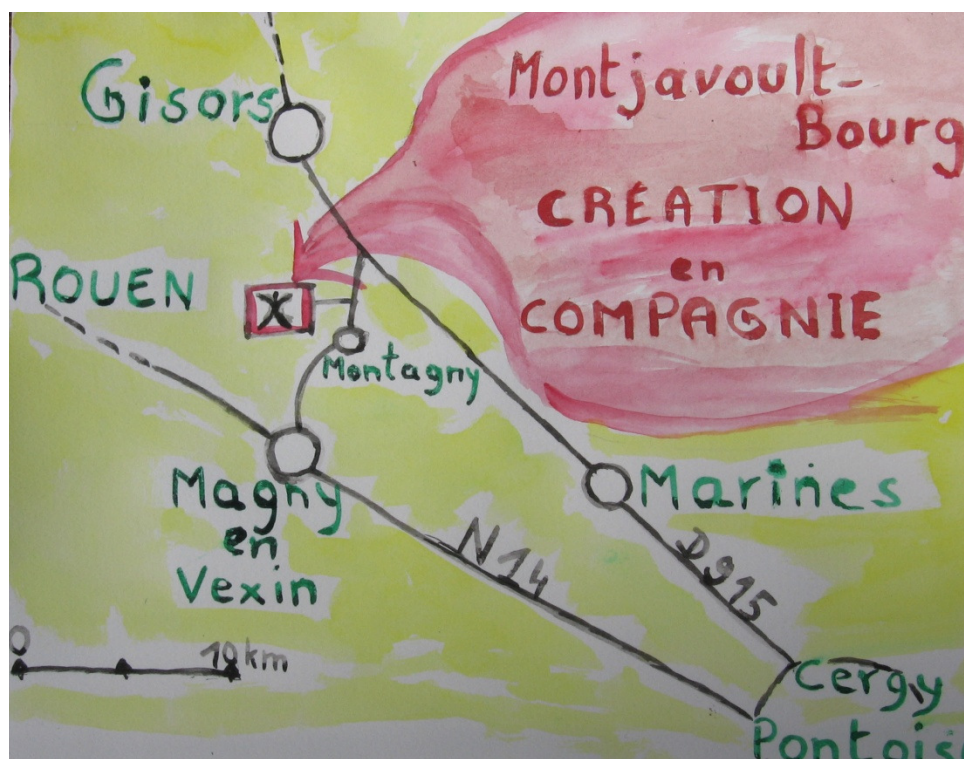 Montjavoult-
Bourg
Gisors
CRÉATION
en
COMPAGNIE
ROUEN
Montagny
Magny
en
Vexin
Marines
N14
D915
0
10 km
Cergy
Pontois